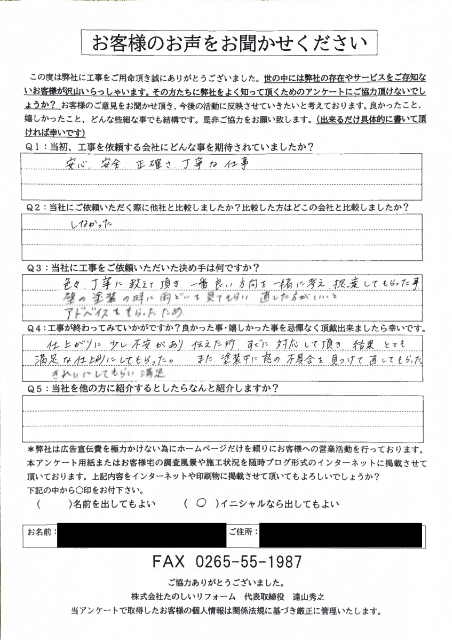 お客様のお声をお聞かせください
この度は弊社に工事をご用命頂き誠にありがとうございました。世の中には弊社の存在やサービスをご存知な
いお客様が沢山いらっしゃいます。その方たちに弊社をよく知って頂くためのアンケートにご協力頂けないでし
ょうか? お客様のご意見をお聞かせ頂き、今後の活動に反映させていきたいと考えております。良かったこと、
嬉しかったこと、どんな些細な事でも結構です。是非ご協力をお願い致します。(出来るだけ具体的に書いて頂
ければ幸いです)
Q1:当初、工事を依頼する会社にどんな事を期待されていましたか?
安心、安全 正確さ 丁寧な仕事
Q2:当社にご依頼いただく際に他社と比較しましたか?比較した方はどこの会社と比較しましたか?
しなかった
Q3:当社に工事をご依頼いただいた決め手は何ですか?
色々、丁寧に教えて頂き 一番良い方向を一緒に考え 提案してもらった事
壁の塗装の時に雨どいを見てもらい 直した方がいいと
アドバイスをもらったため
Q4:工事が終わってみていかがですか?良かった事・嬉しかった事を忌憚なく頂戴出来ましたら幸いです。
仕上がりに少し不安があり 伝えた所 すぐに対応して頂き 結果 とても
満足な仕上りにしてもらった。 また 塗装中に窓の不具合を見つけて直してもらった
きれいにしてもらい満足
Q5:当社を他の方に紹介するとしたらなんと紹介しますか?
*弊社は広告宣伝費を極力かけない為にホームページだけを頼りにお客様への営業活動を行っております。
本アンケート用紙またはお客様宅の調査風景や施工状況を随時ブログ形式のインターネットに掲載させて
頂いております。上記内容をインターネットや印刷物に掲載させて頂いてもよろしいでしょうか?
下記の中から〇印をお付下さい。
(　　)名前を出してもよい　　(　〇　)イニシャルなら出してもよい
お名前:　　ご住所:
FAX 0265-55-1987
ご協力ありがとうございました。
株式会社たのしいリフォーム　代表取締役　遠山秀之
当アンケートで取得したお客様の個人情報は関係法規に基づき厳正に管理いたします。